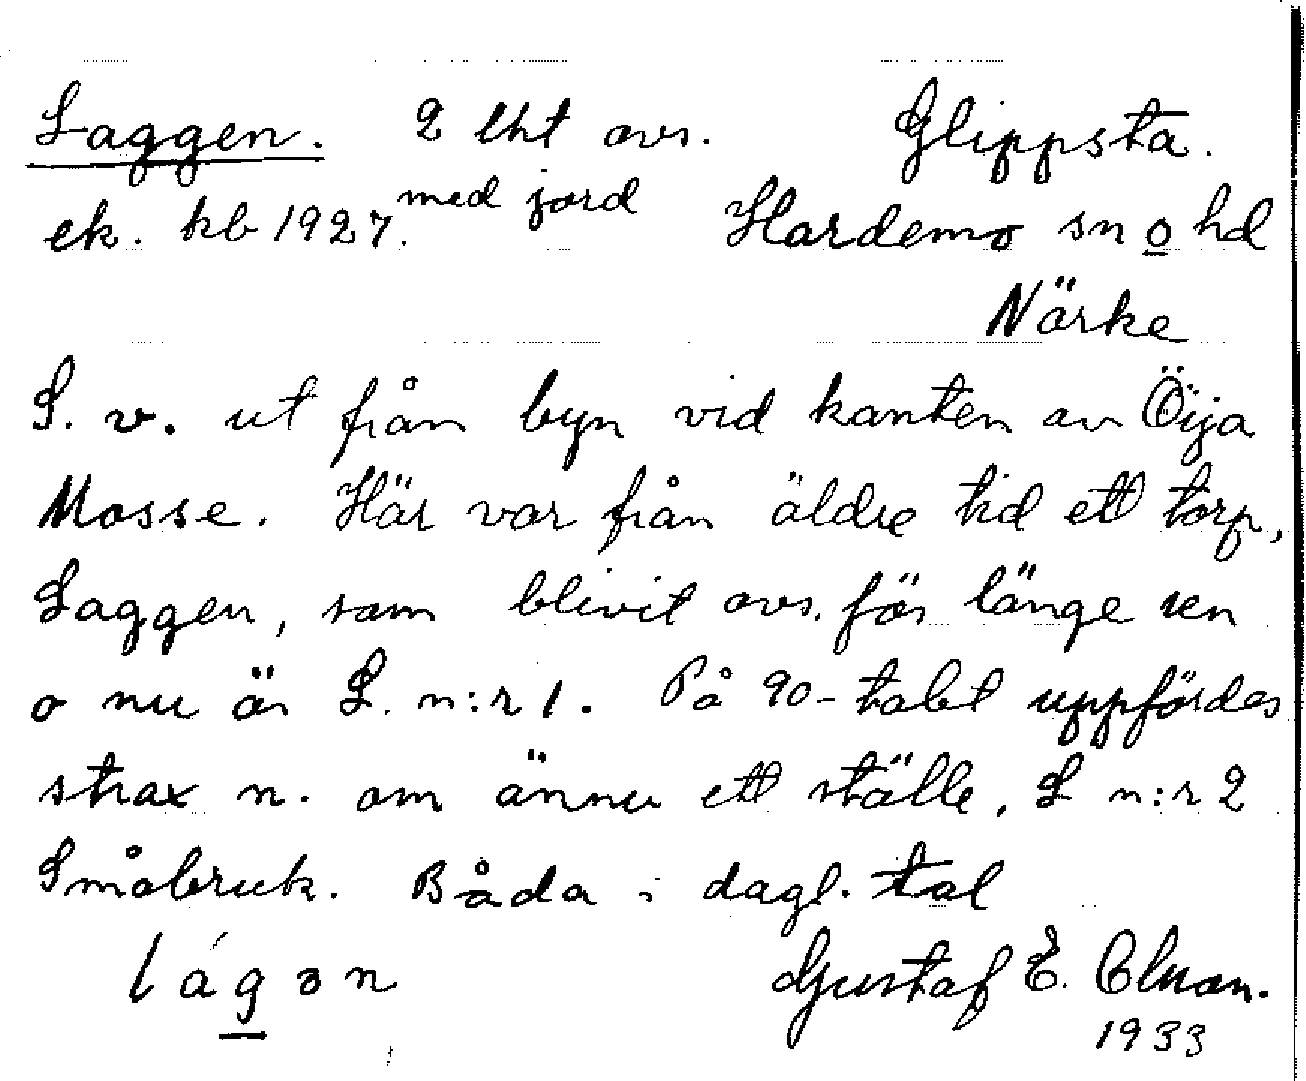 Laggen. 2 lht avs. Glippsta.
ek. kb 1927. med jord Hardemo sn o hd
Närke
S. v. ut från byn vid kanten av Öija
Mosse. Här var från äldre tid ett torp,
Laggen, som blivit avs. för länge sen
o nu är L. n:r 1. På 90-talet uppfördes
strax n. om ännu ett ställe, L n:r 2
Småbruk. Båda i dagl. tal
lágɔn Gustaf E.
1933